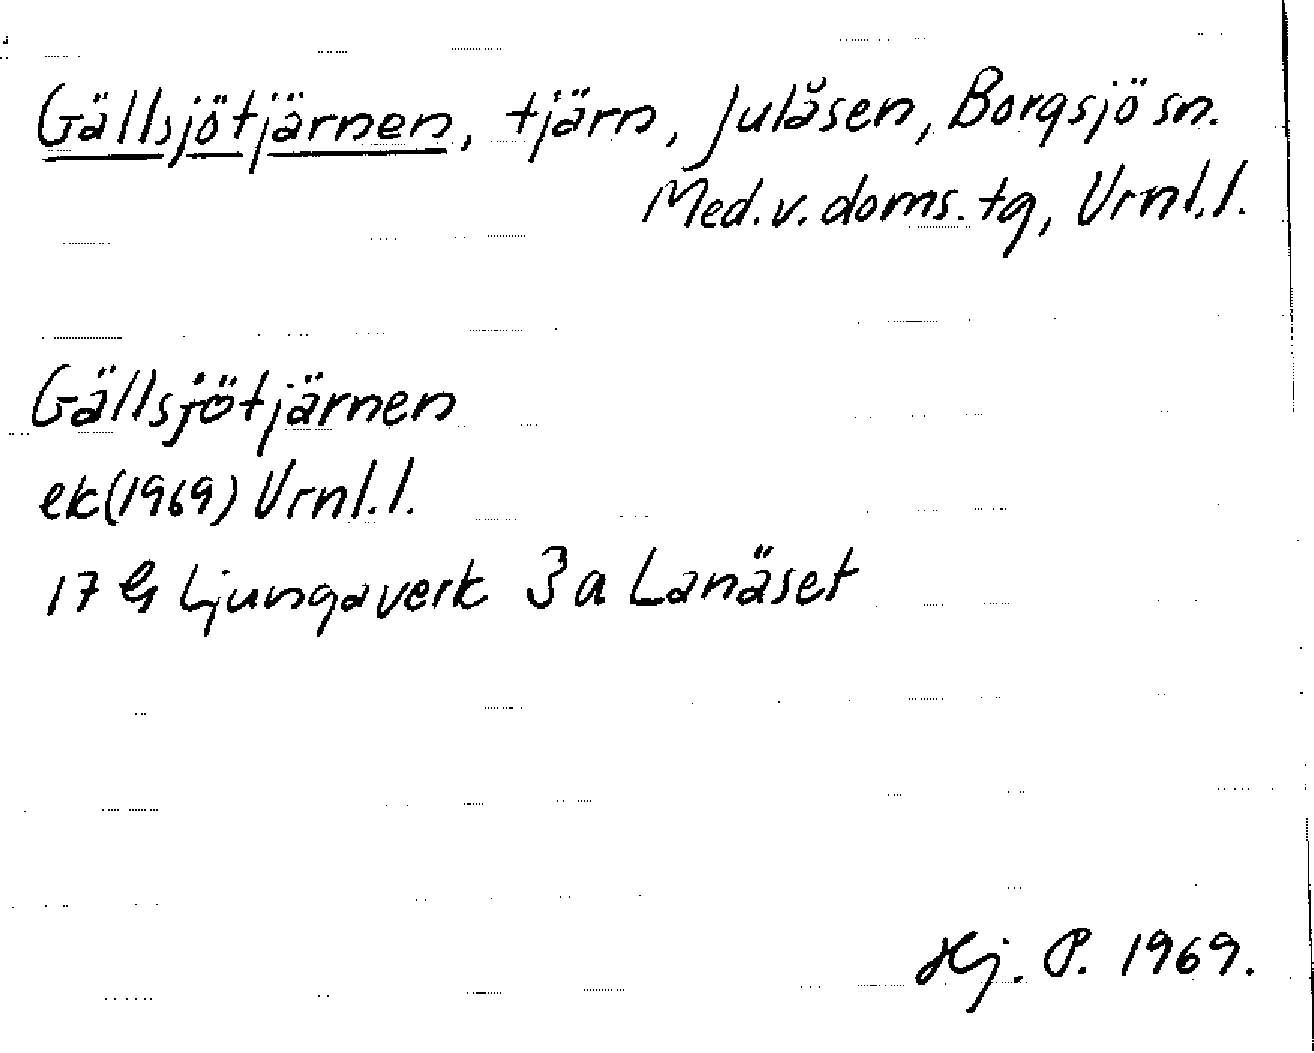 Gällsjötjärnen, tjärn, Julåsen, Borgsjö sn.
Med. v. doms. tg, Vrnl. l.
Gällsjötjärnen
ek (1969) Vrnl. l.
17 G Ljungaverk 3 a Lanäset
Hj. P. 1969.